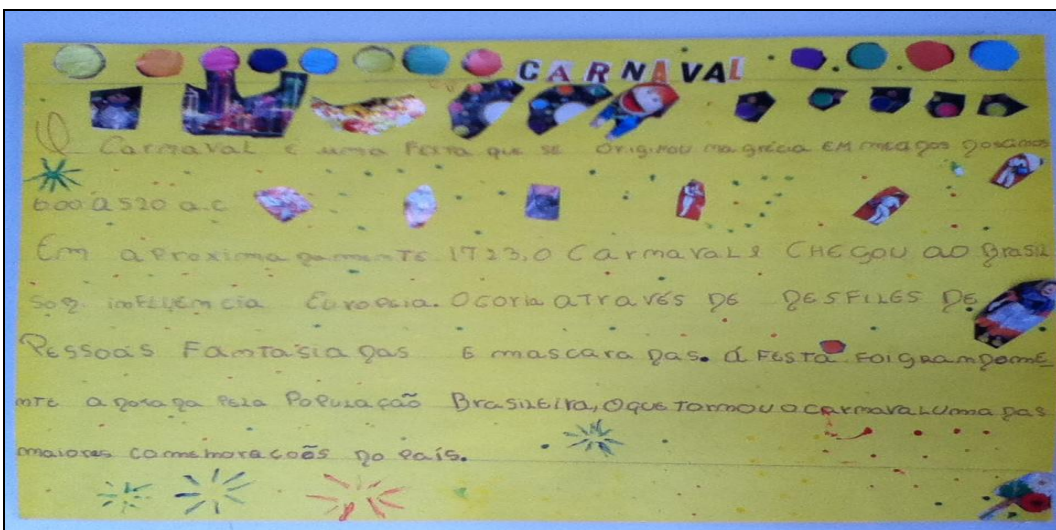 CARNAVAL
O Carnaval é uma Festa que se originou na grécia EM meados dos anos
600 á 520 a.c
Em aproximadamente 1723, o Carnaval CHEGOU ao Brasil
sob influência Europeia. Ocoria aTravés DE DESFILES DE
PESSoas FanTasiadas E mascaradas. á FESTa Foi grandeme
nTE adotada PELA População BrasiLEira, o que Tornou o carnaval uma das
maiores comemoracoẽs do País.